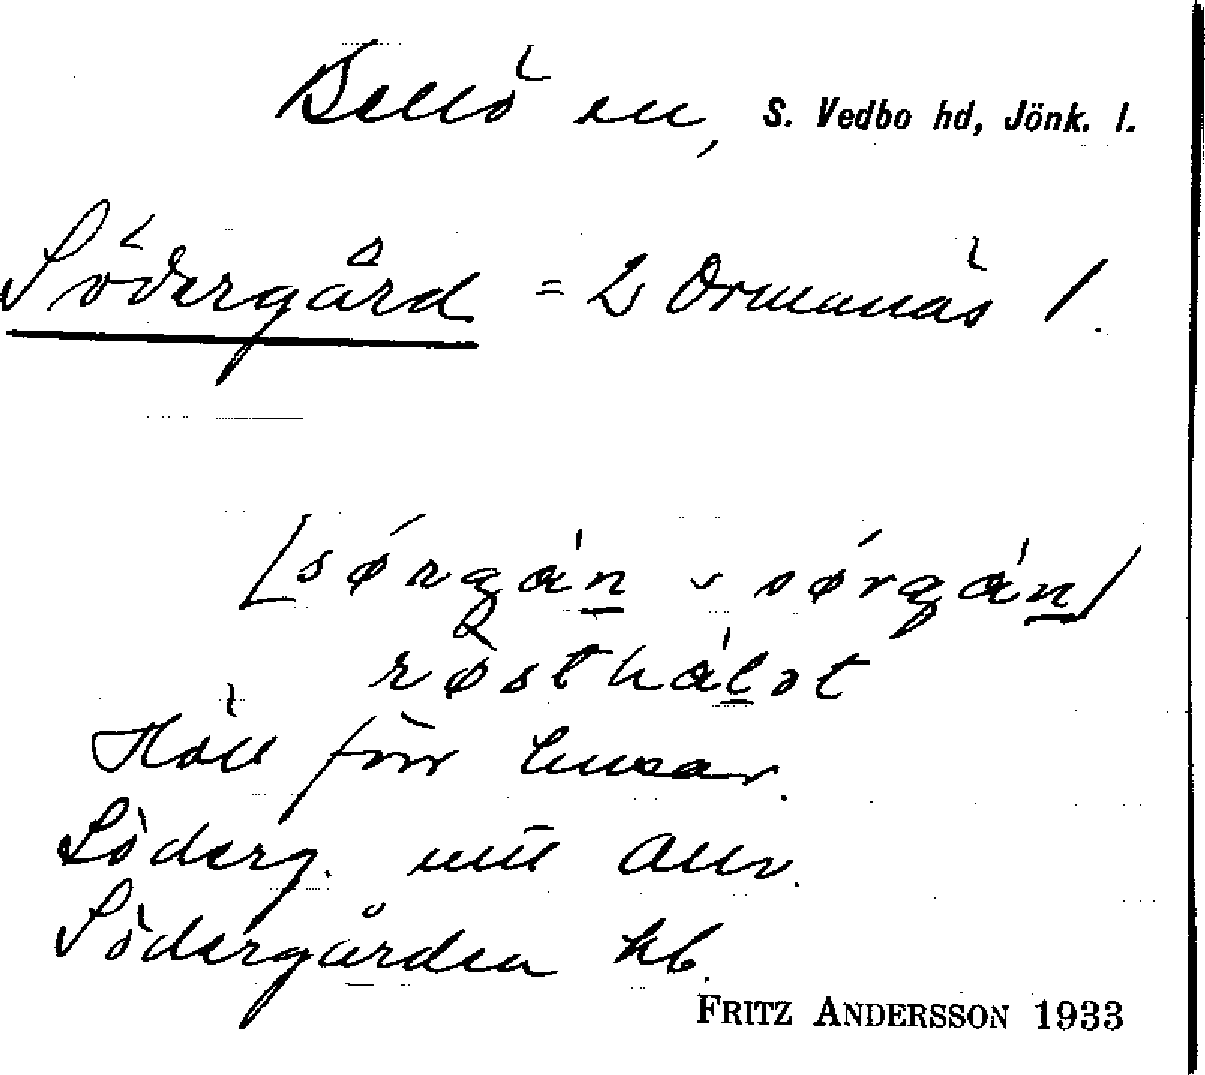 Bellö sn, S. Vedbo hd, Jönk. l.
Södergård = 2 Ormanäs 1.
[sørgán ~ sørgán]
røsthålət
Höll förr husar.
Söderg. nu allv.
Södergården kb.
FRITZ ANDERSSON 1933